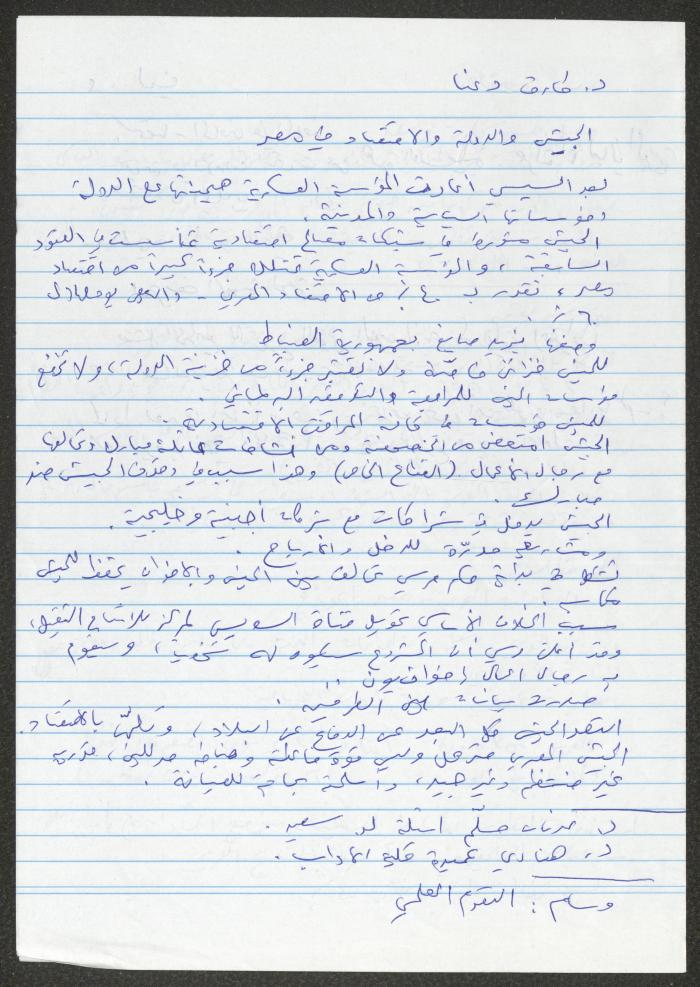 د. طارق دعنا
الجيش والدولة والاقتصاد في مصر
بعد السيسي أعادت المؤسسة العسكرية هيمنتها مع الدولة
ومؤسساتها السياسية والمدنية.
الجيش متورط في شبكات مصالح اقتصادية تأسست في العقود
السابقة، والمؤسسة العسكرية تمتلك جزءاً كبيراً من اقتصاد
مصر، تقدر بـ ٤٠٪ من الاقتصاد المصري - والبعض يقول
٦٠٪.
وصفها يزيد صايغ بجمهورية الضباط
للجيش خزائن خاصة ولا تعتبر جزءاً من خزينة الدولة، ولا تخضع
مؤسسات الجيش للمراجعة والتدقيق البرلماني.
للجيش مؤسسات في كافة المرافق الاقتصادية.
الجيش امتعض من الخصخصة ومن نشاطات عائلة مبارك وتحالفها
مع رجال الأعمال (القطاع الخاص) وهذا سبب في وقوف الجيش ضد
مبارك.
الجيش يدخل في شراكات مع شركات أجنبية وخليجية.
ومشاريع مدرّة للدخل والأرباح.
تشكل في بداية حكم مرسي تحالف بين الجيش والإخوان يحفظ للجيش
مكاسبه.
سبب الخلاف الأساسي تحويل قناة السويس لمركز للإنتاج الثقيل،
وقد أعلن مرسي أن المشروع سيكون له، وسيقوم
به رجال أعمال إخوانيون..
صدرت بيانات من الطرفين.
ابتعد الجيش كل البعد عن الدفاع عن البلاد، وتلهّى بالاقتصاد.
الجيش المصري مترهل وليس قوة فاعلة، تدريبه
غير منتظم وغير جيد، وأسلحته بحاجة للصيانة.
د. عدنان مسلّم أسئلة لـ سعيد.
د. هنادي عميدة كلية الآداب.
وسام: التقدم العلمي